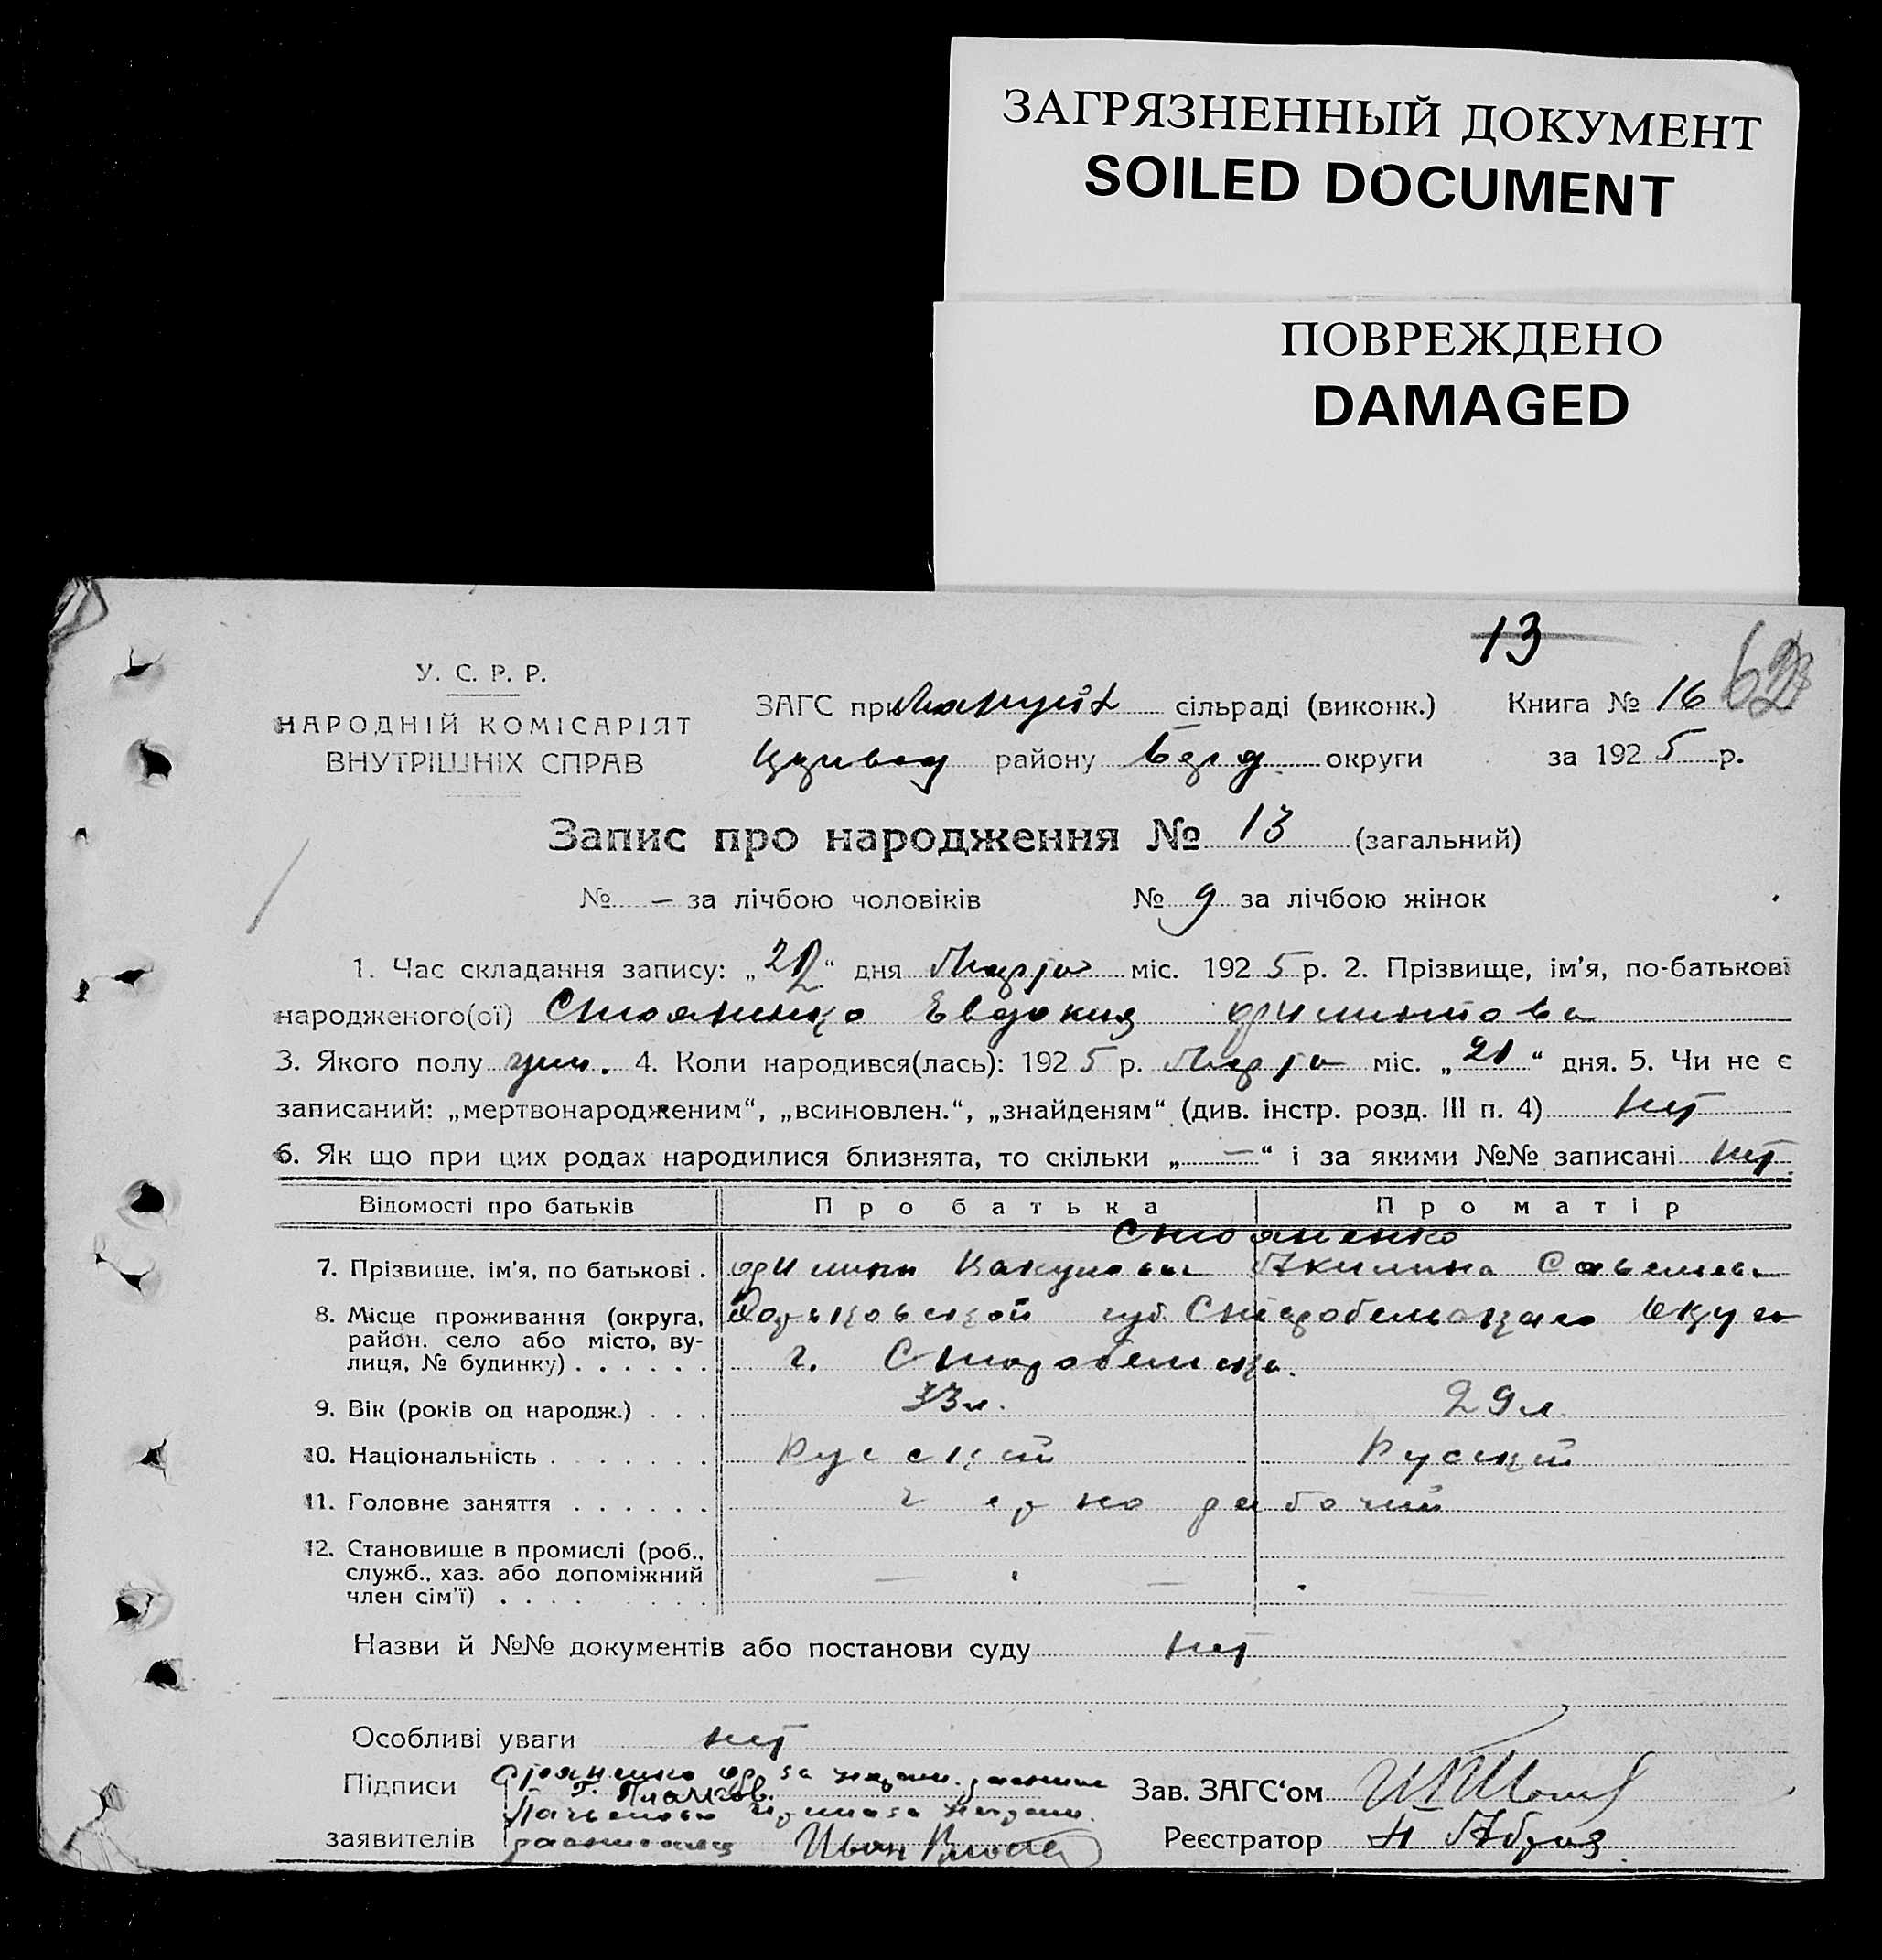 ЗАГРЯЗНЕННЫЙ ДОКУМЕНТ
SOILED DOCUMENT
ПОВРЕЖДЕНО
DAMAGED
13
У. С. Р. Р.
НАРОДНІЙ КОМІСАРІЯТ
ВНУТРІШНІХ СПРАВ
ЗАГС при сільраді (виконк.) Книга № 16
району округи за 1925 р.
Запис про народження № 13 (загальний)
№ — за лічбою чоловіків № 9 за лічбою жінок
1. Час складання запису: „ “ дня Марта міс. 1925 р. 2. Прізвище, ім’я, по-батькові
народженого(ої) Стояненко Евдокия
3. Якого полу жен. 4. Коли народився(лась): 1925 р. Марта міс. „21“ дня. 5. Чи не є
записаний: „мертвонародженим“, „всиновлен.“, „знайденям“ (див. інстр. розд. III п. 4) нет
6. Як що при цих родах народилися близнята, то скільки „—“ і за якими №№ записані нет.
Відомості про батьків Про батька Про матір
Стояненко
7. Прізвище, ім’я, по батькові . Акилина Савельева
8. Місце проживання (округа, Харьковской губ. Старобельскаго Округа
район, село або місто, ву-
лиця, № будинку) . . . . . . г. Старобельска.
9. Вік (років од народж.) . . . 33 л. 29 л.
10. Національність . . . . . . . Русский Русский
11. Головне заняття . . . . . . Чернорабочий
12. Становище в промислі (роб.,
служб., хаз. або допоміжний
член сім’ї) . . . . . . . . — —
Назви й №№ документів або постанови суду нет
Особливі уваги нет
Підписи Стояненко за неграм. Зав. ЗАГС‘ом
заявителів Иван Реєстратор